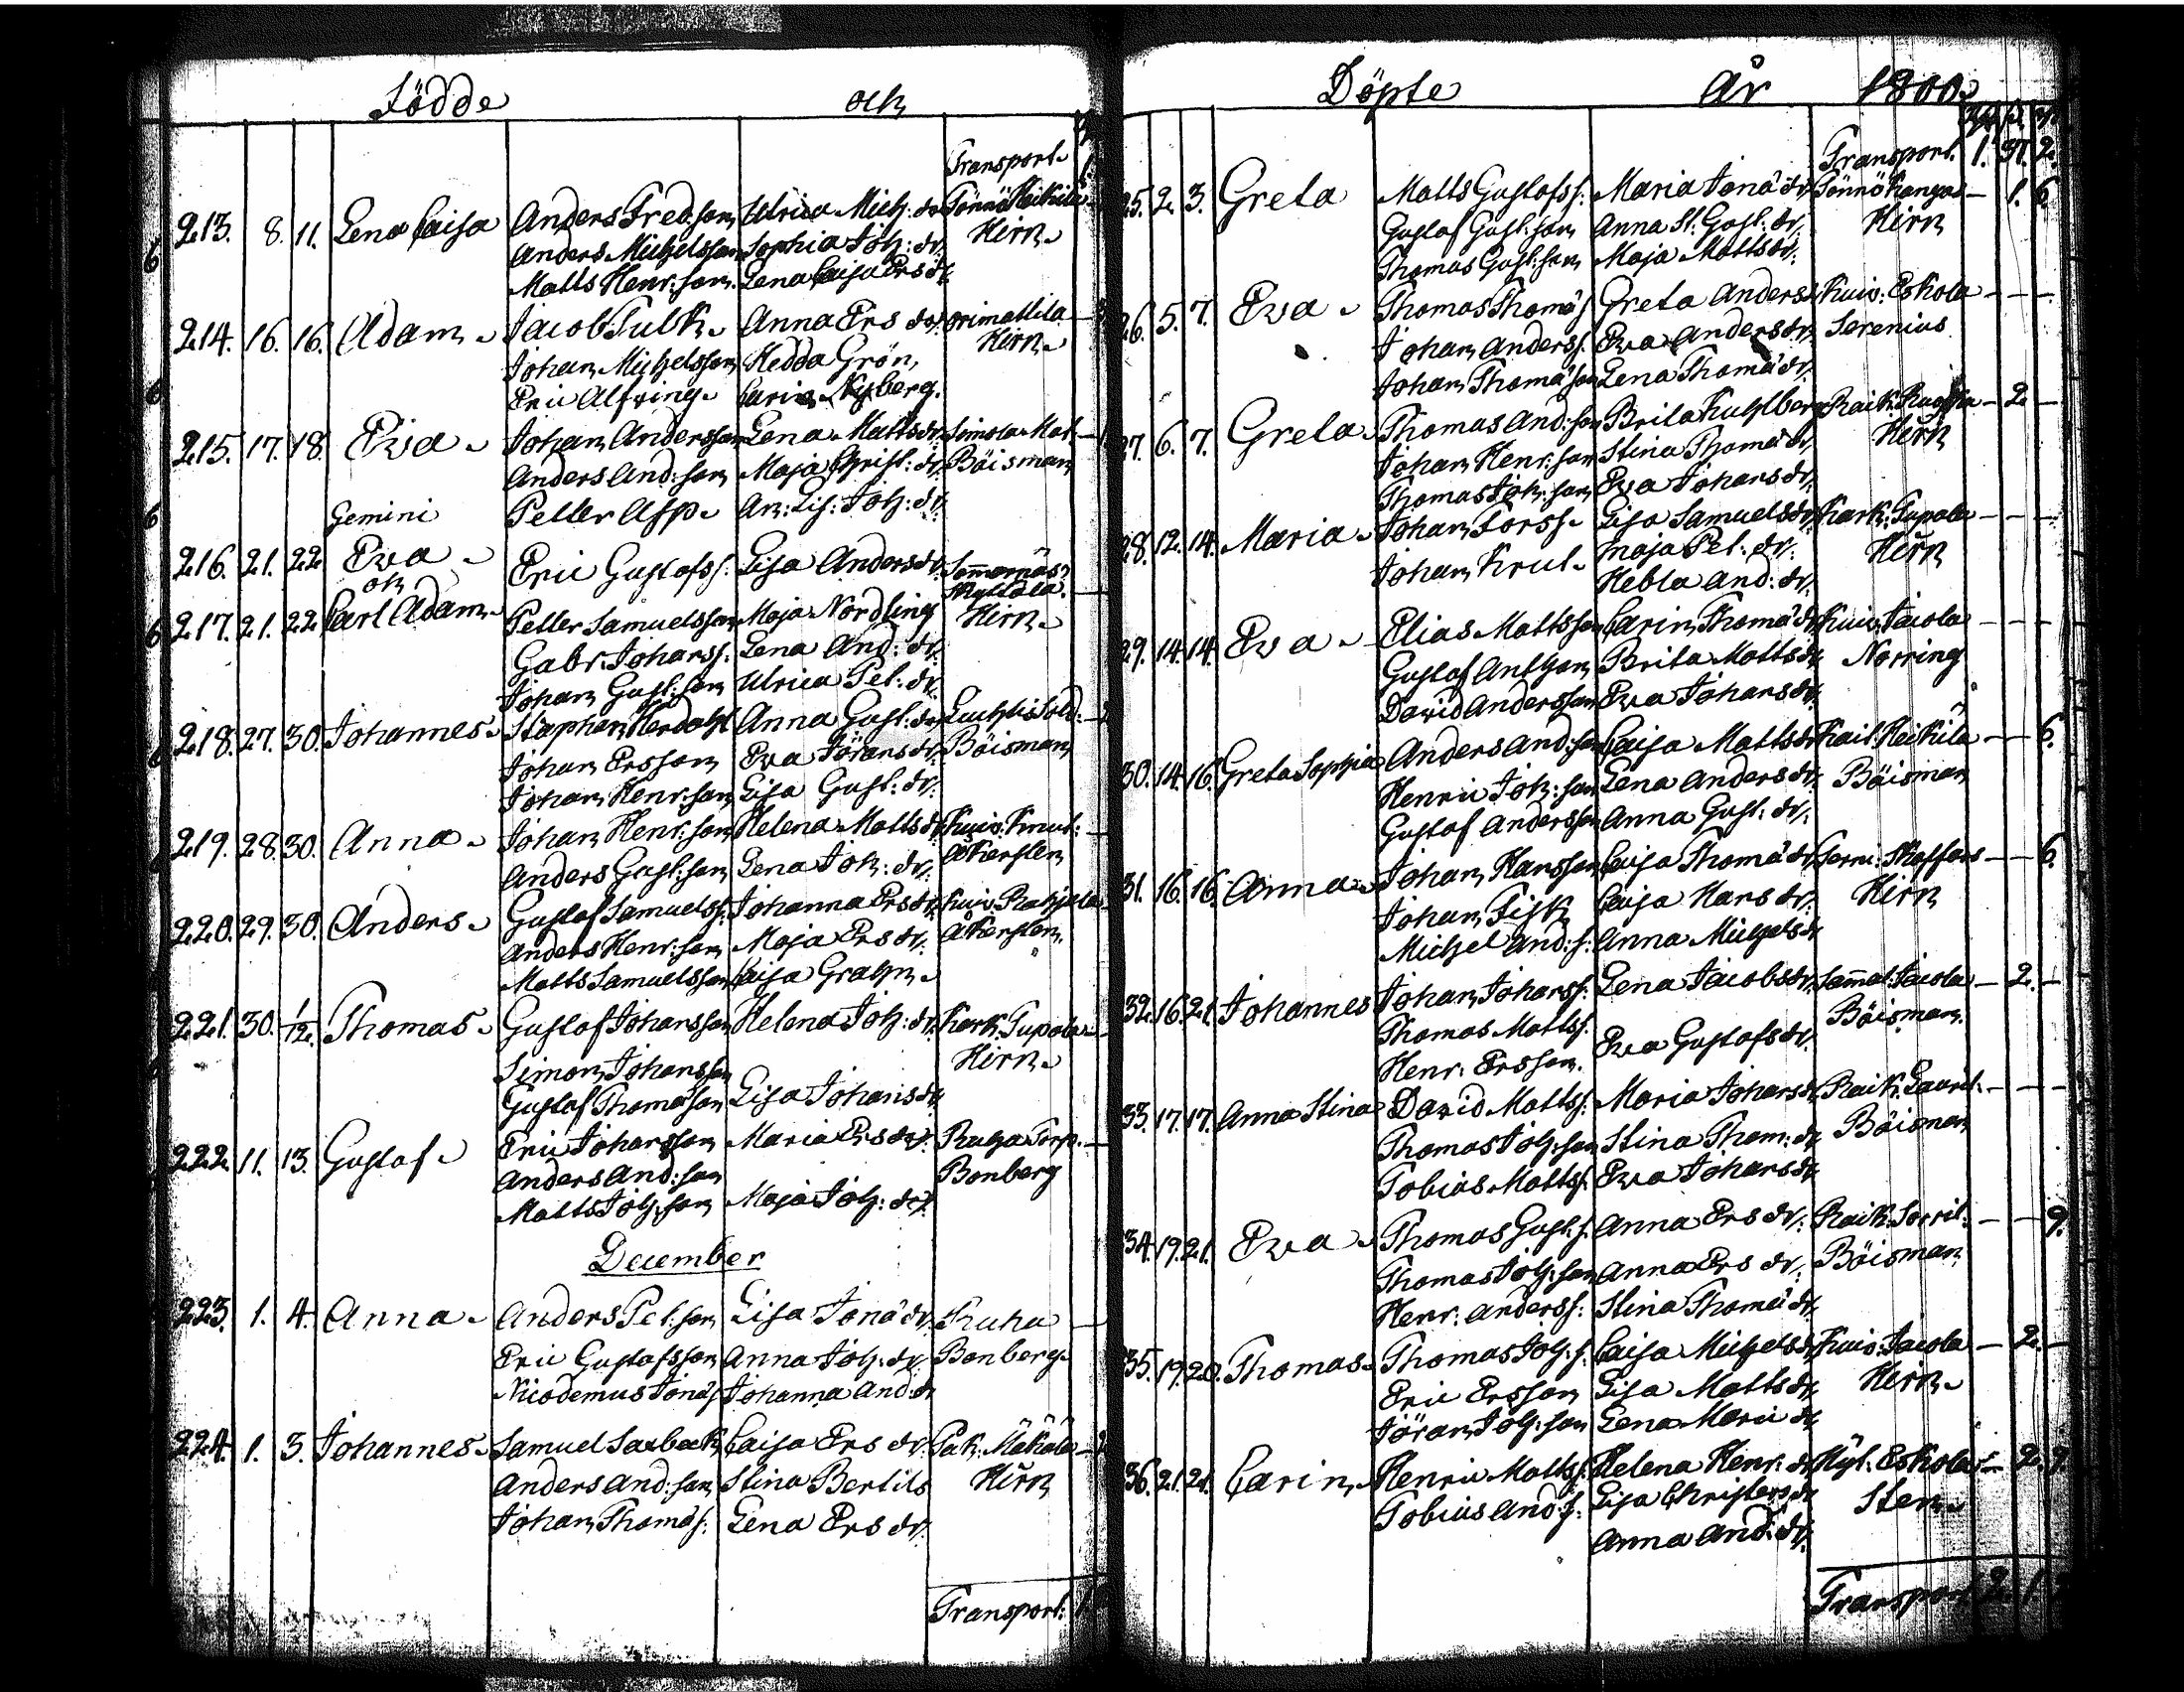 Födde och
Transport
213. 8. 11. Lena Caisa Anders Fred:son Ulrica Mich: dr Tönnö Heikilä
Anders Michelsson Sophia Joh: dr. Hirn
Matts Henr:son. Lena Caisa Ersdr.
214. 16. 16. Adam Jacob Tulk Anna Ers dr. Orimattila
Johan Michelsson Hedda Grön, Hirn
Eric Alfving Carin Nyberg.
215. 17. 18. Eva Johan Andersson Lena Mattsdr. Simola Mat.
Anders And:son Maja Christ: dr. Böisman
Gemini Petter Asp An: Lis: Joh: dr.
216. 21. 22. Eva Eric Gustafss: Lisa Andersdr.
och
217. 21. 22. Carl Adam Petter Samuelsson Maja Nordling Hirn
Gabr: Johanss: Lena And: dr.
Johan Gust:son Ulrica Pet: dr.
218. 27. 30. Johannes Staphan Herdahl Anna Gust: dr
Johan Ersson Eva Jöransdr. Böisman
Johan Henr:son Lisa Gust: dr.
219. 28. 30. Anna Johan Henr:son Helena Mattsdr. Kuiv. Knut:
Anders Gust:son Lena Joh: dr. Åkerslen
220. 29. 30. Anders Gustaf Samuelss. Johanna Ersdr.
Anders Henr:son Maja Ers dr. Åkerslen
Matts Samuelsson Caisa Grahn
221. 30. 1/12. Thomas Gustaf Johansson Helena Joh: dr. Kark. Tupala
Simon Johansson Hirn
Gustaf Thomason Lisa Johansdr
222. 11. 13. Gustaf Eric Johansson Maria Ersdr. Ruha Torp.
Anders And:son Bonberg
Matts Joh:son Maja Joh: dr.
December
223. 1. 4. Anna Anders Pet:son Lisa Jonä dr. Ruha
Eric Gustafsson Anna Joh: dr. Bonberg
Nicodemus Jonäs. Johanna And: dr
224. 1. 3. Johannes Samuel Saxback Caisa Ers dr. Pak. Mäkälä
Anders And:son Stina Bertils Hirn
Johan Thomäs: Lena Ers dr.
Transport: 1.
Döpte År 1800
Transport. 1. 37. 2.
25. 2. 3. Greta Matts Gustafss: Maria Jonä dr. Tönnö Kangas 1. 6.
Gustaf Gust:son Anna St. Gust: dr. Hirn
Thomas Gust:son Maja Mattsdr.
26. 5. 7. Eva Thomas Thomäs Greta Anders Kuiv: Eskola
Johan Anderss. Eva Andersdr. Serenius
Johan Thomäson Lena Thomä dr.
27. 6. 7. Greta Thomas And:son Brita Kuhlberg 2.
Johan Henr:son Stina Thomä dr. Hirn
Thomas Joh:son Eva Johansdr.
28. 12. 14. Maria Johan Forss Lisa Samuelsdr. Kark: Tupala
Johan Krut Maja Pet: dr. Hirn
Hebla And: dr.
29. 14. 14. Eva Elias Mattsson Carin Thomä dr Kuiv. Jacola
Gustaf Anthon Brita Mattsdr. Norring
David Andersson Eva Johansdr.
30. 14. 16. Greta Sophia Anders And:son Caisa Mattsdr Kait. Heikilä 6.
Henric Joh:son Lena Andersdr. Böisman
Gustaf Andersson Anna Gust: dr.
31. 16. 16. Anna Johan Hansson Caisa Thomä dr. 6.
Johan Fisk Caisa Hansdr. Hirn
Michel And:s: Anna Michelsdr
32. 16. 21. Johannes Johan Johanss: Lena Jacobsdr. Sammal. Jacola 2.
Thomas Mattss. Böisman.
Henr: Ersson. Eva Gustafsdr.
33. 17. 17. Anna Stina David Mattss. Maria Johansdr. Raik: Lauril.
Thomas Joh:son Stina Thom: dr. Böisman
Tobias Mattss. Eva Johansdr
34. 19. 21. Eva Thomas Gust:s. Anna Ers dr. Raik. Sorril: 9.
Thomas Joh:son Anna Ers dr. Böisman
Henr: Anderss: Stina Thomä dr.
35. 19. 20. Thomas Thomas Joh:s. Caisa Michelsdr Kuiv. Jacola 2.
Eric Ersson Lisa Mattsdr. Hirn
Jöran Joh:son Lena Maria dr.
36. 21. 21. Carin Henric Mattss: Helena Henr: dr Kyl. Eskola 2. 9.
Tobias And:s: Lisa Christersdr Sten
Anna And: dr.
Transport 2. 1.